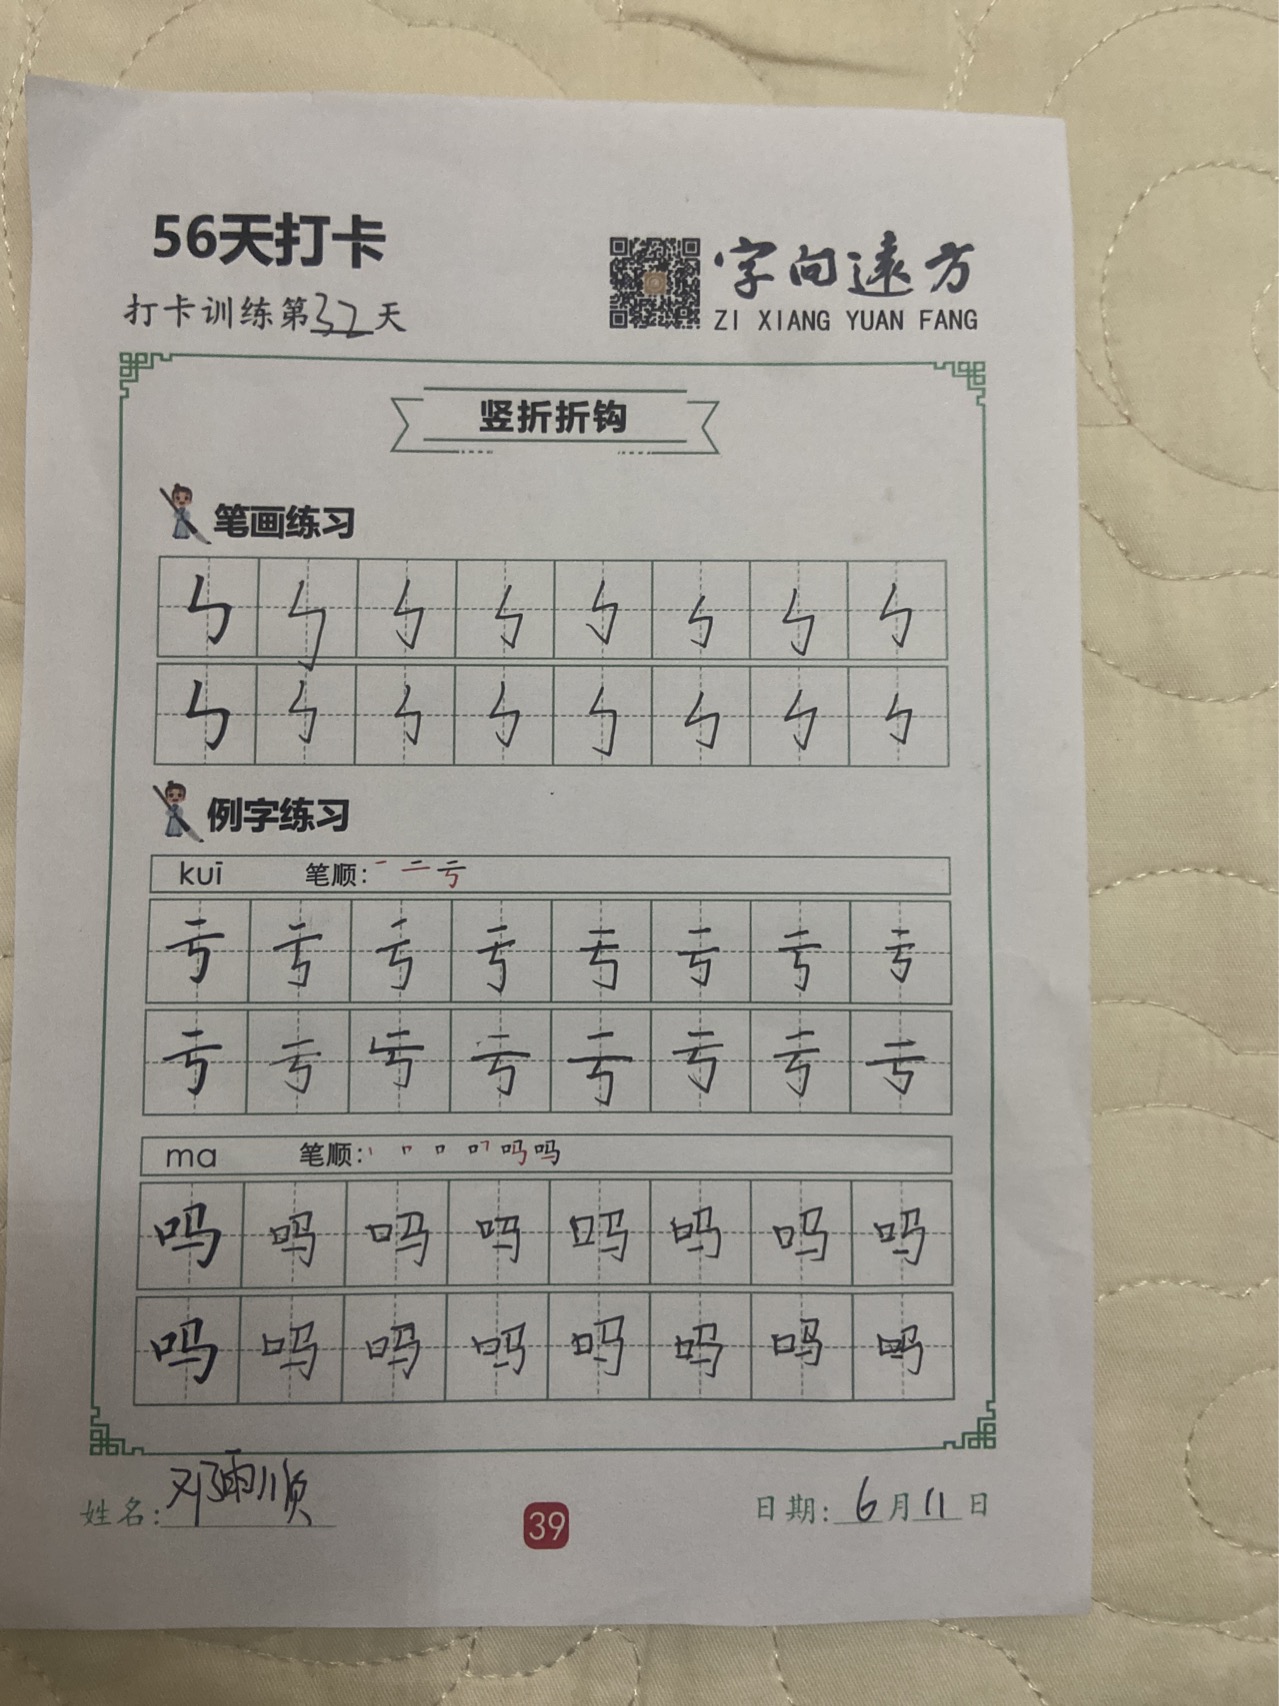 56天打卡
打卡训练第32天
字向遠方
ZI XIANG YUAN FANG
竖折折钩
笔画练习
ㄣ ㄣ ㄣ ㄣ ㄣ ㄣ ㄣ ㄣ
ㄣ ㄣ ㄣ ㄣ ㄣ ㄣ ㄣ ㄣ
例字练习
kuī 笔顺: 一 二 亏
亏 亏 亏 亏 亏 亏 亏 亏
亏 亏 亏 亏 亏 亏 亏 亏
ma 笔顺: 丨 口 吗 吗
吗 吗 吗 吗 吗 吗 吗 吗
吗 吗 吗 吗 吗 吗 吗 吗
姓名: 邓雨顺
39
日期: 6月11日